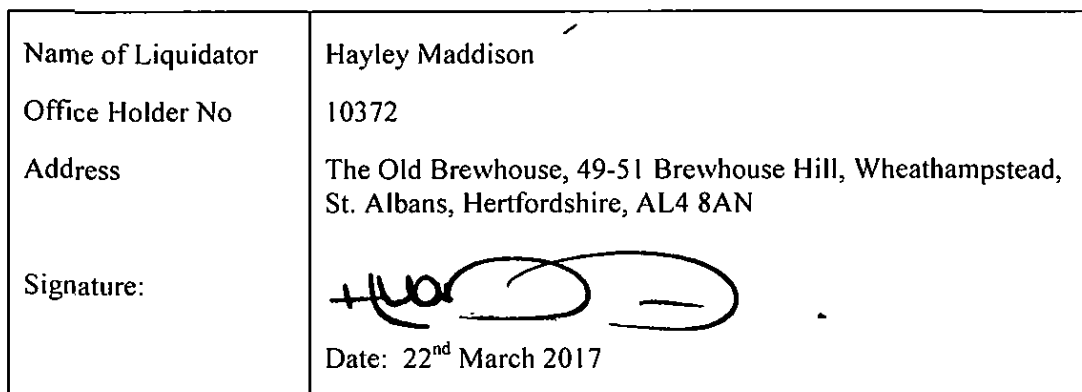 Name of Liquidator Hayley Maddison
Office Holder No 10372
Address The Old Brewhouse, 49-51 Brewhouse Hill, Wheathampstead,
St. Albans, Hertfordshire, AL4 8AN
Signature:
Date: 22nd March 2017